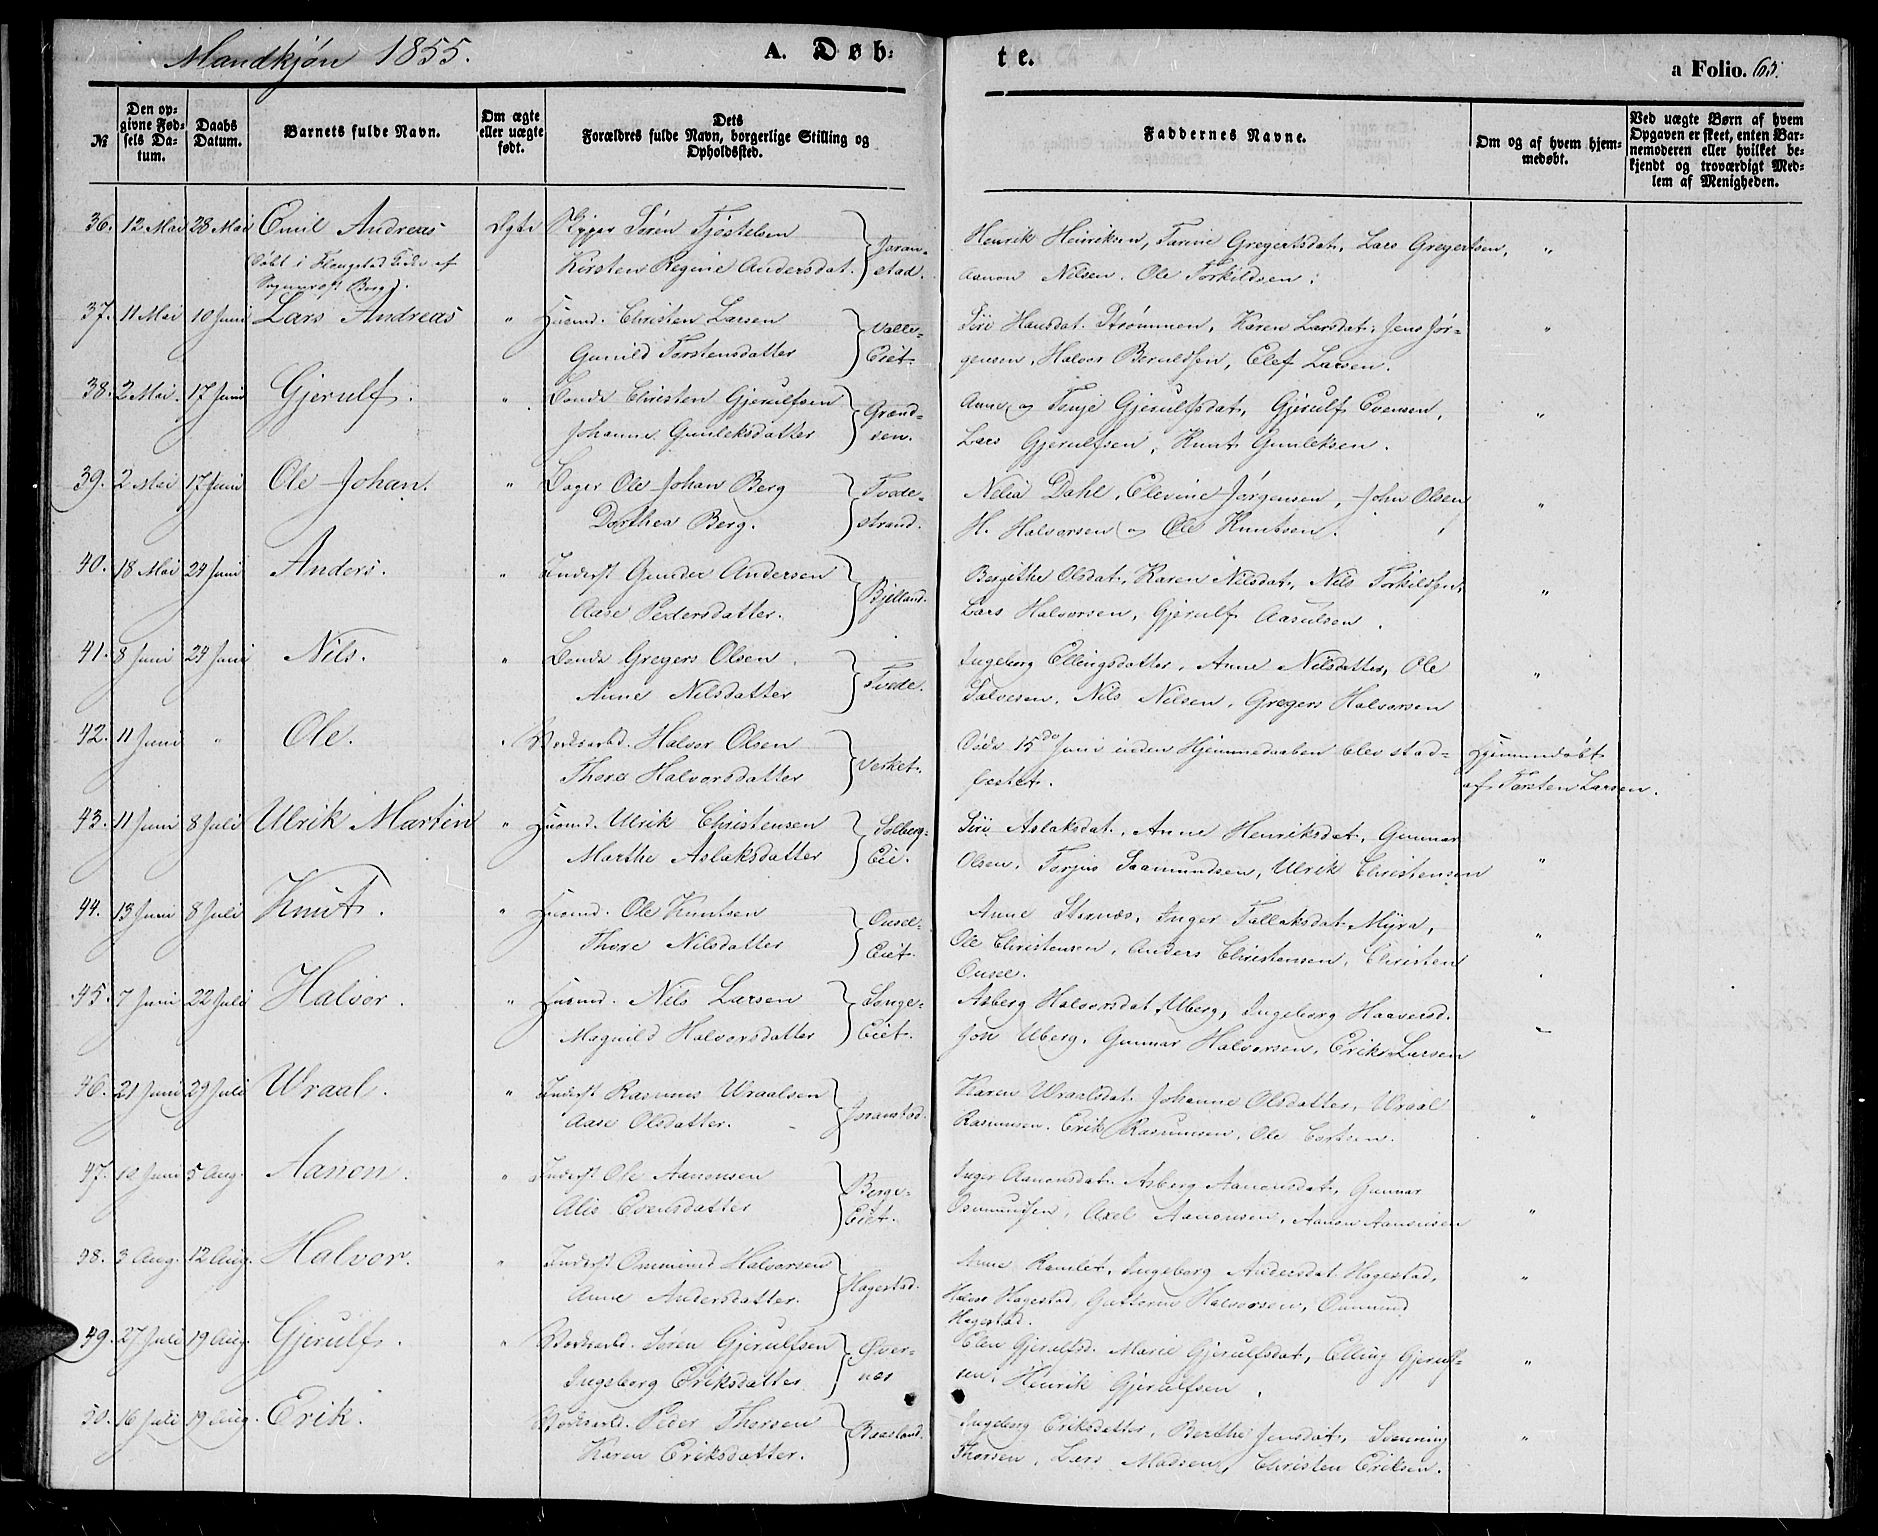 Mandkjøn 1855.
A. Døb-
te.
a Folio. 65.
№
Den op-
givne Fød-
sels Da-
tum.
Daabs
Datum.
Barnets fulde Navn.
Om ægte
eller uægte
født.
Dets
Forældres fulde Navn, borgerlige Stilling og
Opholdssted.
Faddernes Navne.
Om og af hvem hjem-
medøbt.
Ved uægte Børn af hvem
Opgaven er skeet, enten Bar-
nemoderen eller hvilket be-
kjendt og troværdigt Med-
lem af Menigheden.
36. 12 Mai 28 Mai Emil Andreas Ægte Skipper Søren Tjøstelsen Joran- Henrik Henriksen, Tarine Gregertsdat, Lars Gregertsen, "
døbt i Flaugstad Kirke af Kirsten Regine Andersdat. stad. Aanon Nilsen. Ole Torkildsen.
Sognepræst Berg.
37. 11 Mai 10 Juni Lars Andreas " Huusmd. Christen Larsen Valle- Siri Hansdat. Strømmen, Karen Larsdat. Jens Jør- "
Gunild Torstensdatter Eiet. gensen, Halvor Beruldsen, Elef Larsen.
38. 2 Mai. 17 Juni Gjerulf. " Bonde Christen Gjerulfsen Grænd- Anne og Tonje Gjerulfsdat, Gjerulf Evensen, "
Johanne Gunleksdatter sen. Lars Gjerulfsen, Knut Gunleksen.
39. 2 Mai 17 Juni Ole Johan. " Bager Ole Johan Berg Tvede- Nelia Dahl, Elevine Jørgensen, John Olsen "
Dorthea Berg. strand. H. Halvorsen og Ole Knutsen.
40. 18 Mai 24 Juni Anders. " Inderst Gunder Andersen Bjelland. Bergithe Olsdat, Karen Nilsdat, Nils Torkildsen, "
Aase Pedersdatter. Lars Halvorsen, Gjerulf Aasulsen.
41. 8 Juni 24 Juni Nils. " Bonde Gregers Olsen Tvede. Ingeborg Ellingsdatter, Anne Nilsdatter, Ole "
Anne Nilsdatter Talvesen, Nils Nilsen, Gregers Halvorsen
42. 11 Juni " Ole. " Værksarbd. Halvor Olsen Verket. Døde 15de Juni inden Hjemmedaaben blev stad- Hjemmedøbt
Thore Halvorsdatter fæstet. af Torsten Larsen.
43. 11 Juni 8 Juli Ulrik Martin " Huusmd. Ulrik Christensen Solberg- Siri Aslaksdat, Anne Henriksdat, Gunnar "
Marthe Aslaksdatter Eie. Olsen, Torjus Saamundsen, Ulrik Christensen
44. 13 Juni 8 Juli Knut. " Huusmd. Ole Knutsen Ousel- Anne Sternæs, Inger Tallaksdat, Myra, "
Thore Nilsdatter Eiet. Ole Christensen, Anders Christensen, Christen
Ousel.
45. 7 Juni 22 Juli Halvor. " Huusmd. Nils Larsen Songe- Asberg Halvorsdat, Uberg, Ingeborg Haaversd. "
Magnild Halvorsdatter Eiet. Jon Uberg, Gunnar Halvorsen, Erik Larsen
46. 21 Juni 29 Juli Wraal. " Inderst Rasmus Wraalsen Joranstad. Karen Wraalsdat. Johanne Olsdatter, Wraal "
Aase Olsdatter. Rasmussen. Erik Rasmussen, Ole
47. 10 Juni 5 Aug. Aanon. " Inderst Ole Aanonsen Berge- Inger Aanonsdat. Asberg Aanonsdat, Gunnar "
Alis Evensdatter Eiet. Osmundsen, Axel Aanonsen, Aanon Aanonsen
48. 3 Aug. 12 Aug. Halvor. " Inderst Osmund Halvorsen Hagestad. Anne Ramlet, Ingeborg Andersdat. Hagestad, "
Anne Andersdatter. Halvor Hagestad, Gutterm Halvorsen, Osmund
Hagestad.
49. 27 Juli 19 Aug. Gjerulf. " Værksarbd. Søren Gjerulfsen Øver- Elen Gjerulfsd. Marie Gjerulfsdat, Elling Gjerulf- "
Ingeborg Eriksdatter næs sen, Henrik Gjerulfsen.
50. 16 Juli 19 Aug. Erik. Værksarbd. Peder Thorsen Baasland. Ingeborg Eriksdatter, Berthe Jensdat, Svenning "
Karen Eriksdatter. Thorsen, Lars Madsen, Christen Eriksen.